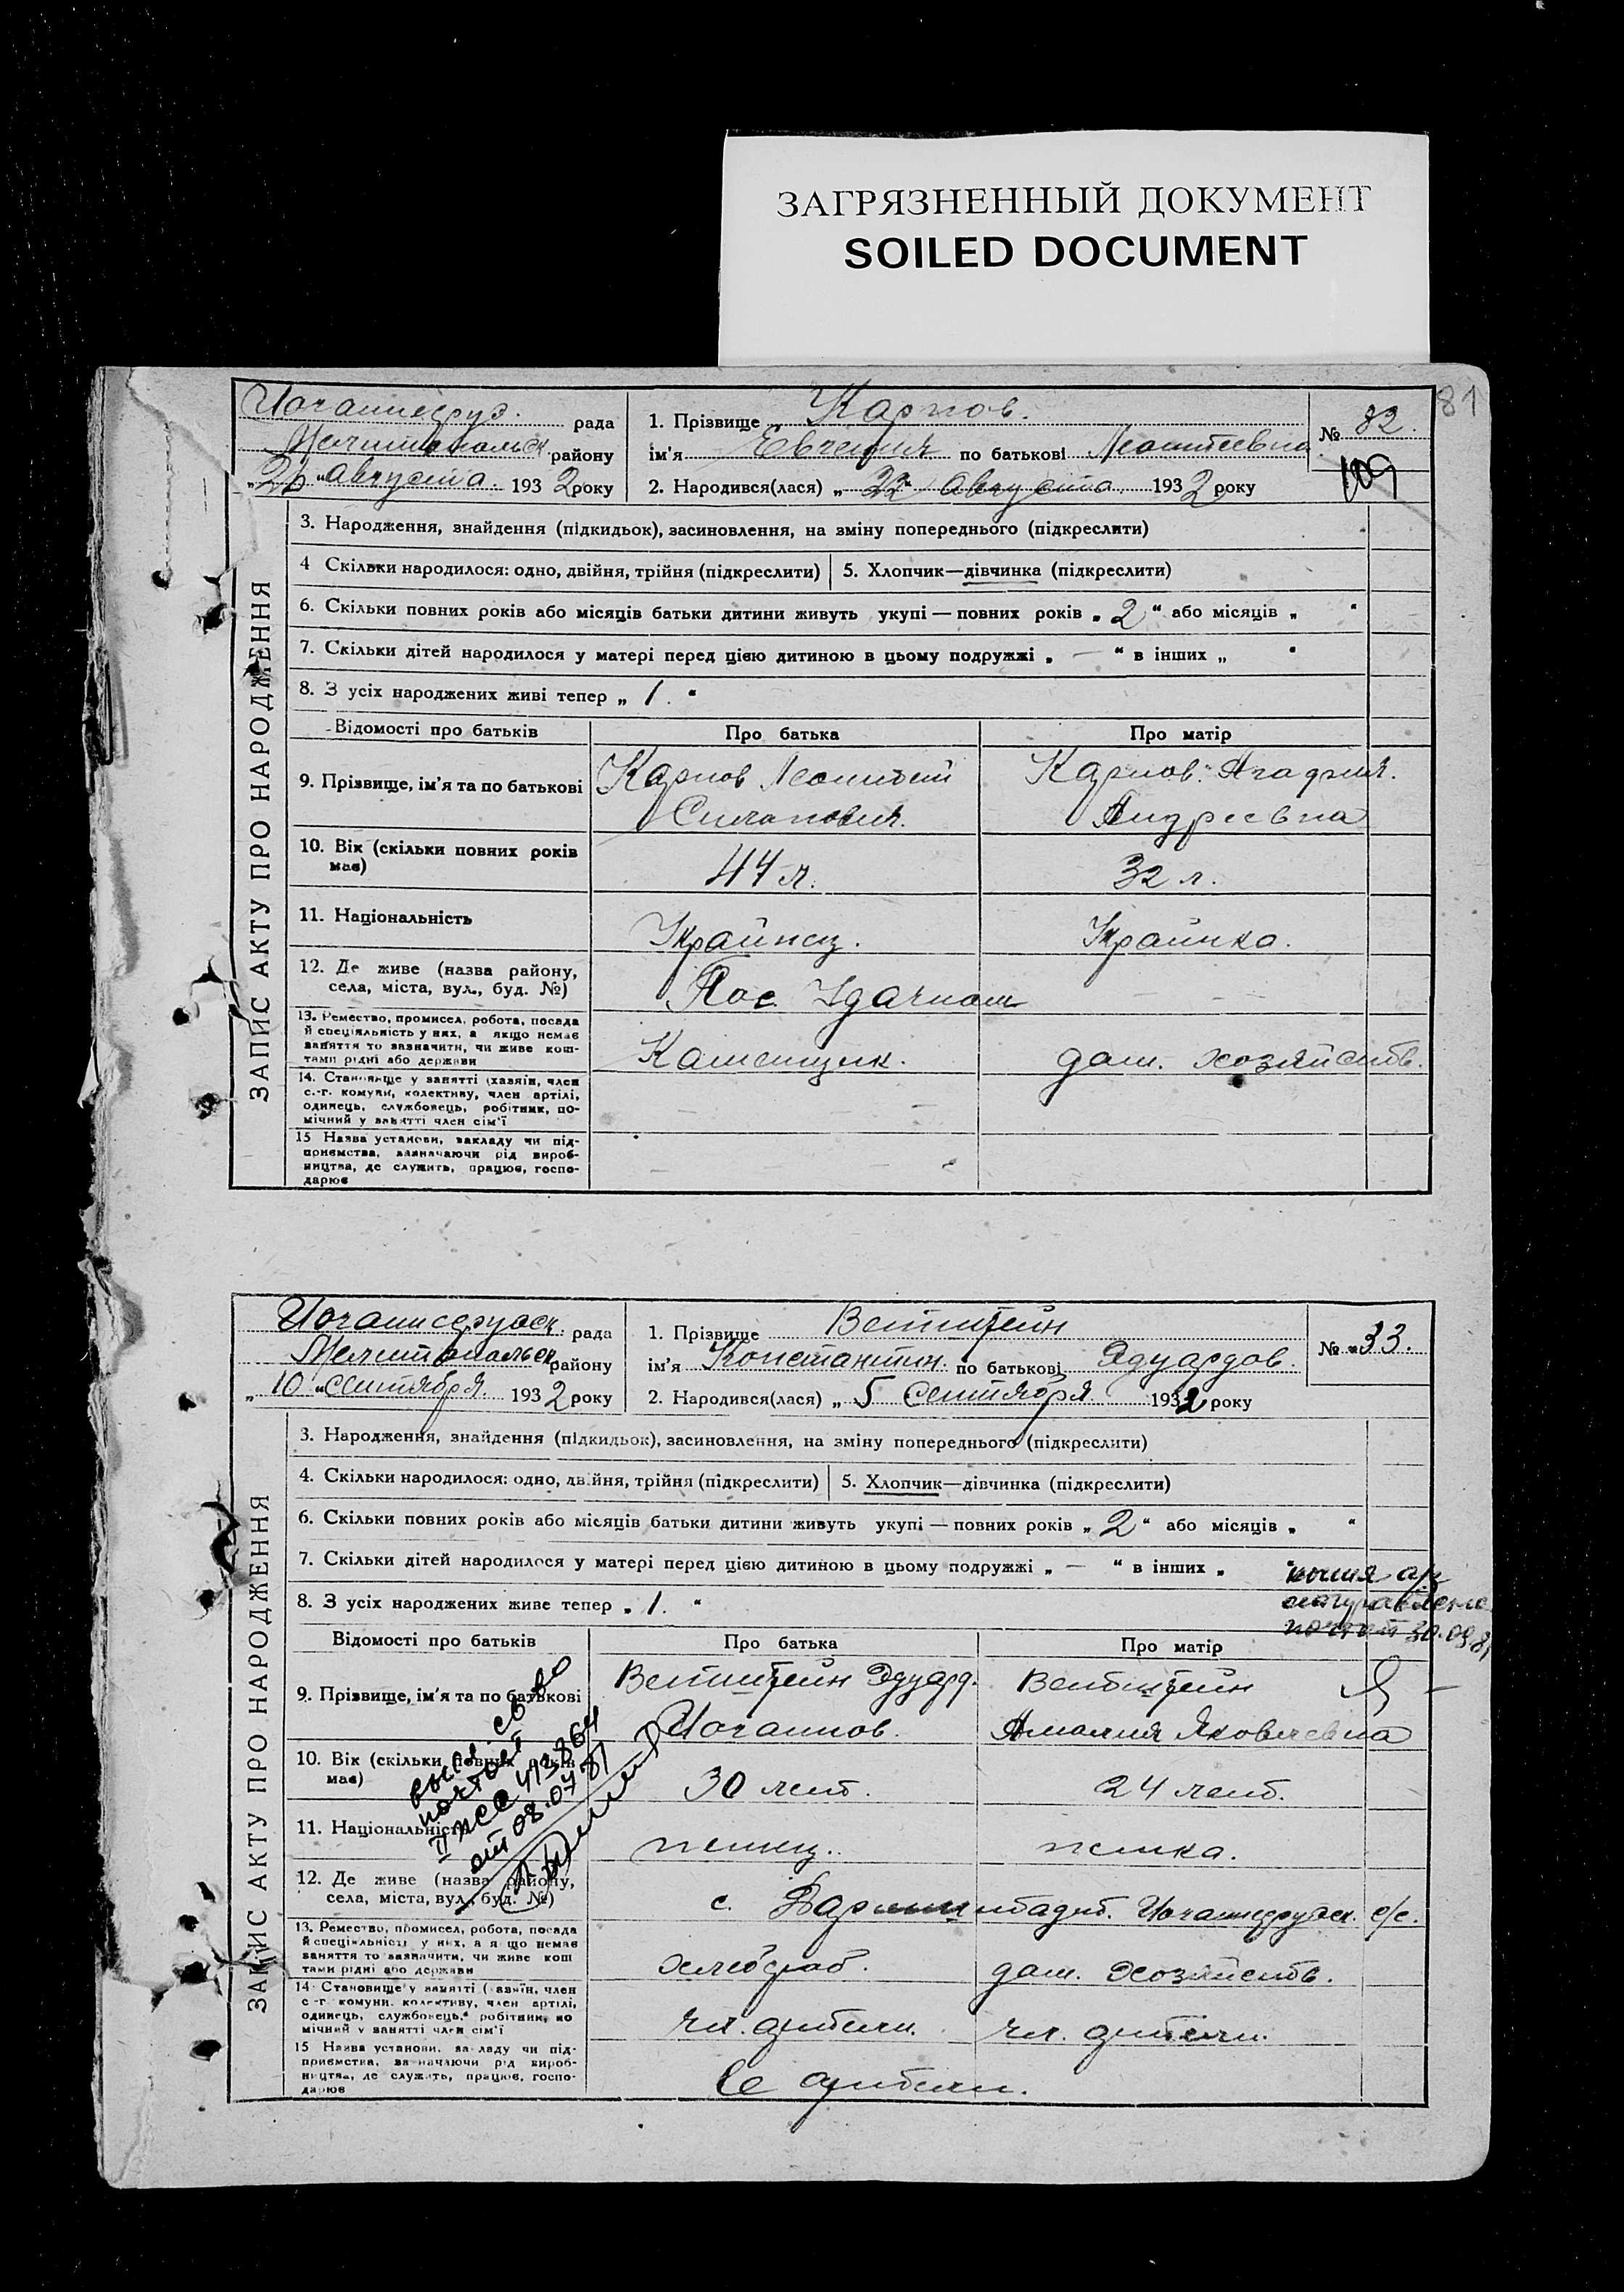 ЗАГРЯЗНЕННЫЙ ДОКУМЕНТ
SOILED DOCUMENT
81
рада
району
„26 “ августа. 1932 року
1. Прізвище Карпов.
ім'я Евгения по батькові Леонтеевна
2. Народився(лася) „ 22 “ августа 1932 року
№ 32.
109
ЗАПИС АКТУ ПРО НАРОДЖЕННЯ
3. Народження, знайдення (підкидьок), засиновлення, на зміну попереднього (підкреслити)
4 Скільки народилося: одно, двійня, трійня (підкреслити) 5. Хлопчик—дівчинка (підкреслити)
6. Скільки повних років або місяців батьки дитини живуть укупі — повних років „ 2 “ або місяців „ “
7. Скільки дітей народилося у матері перед цією дитиною в цьому подружжі „ — “ в інших „ “
8. З усіх народжених живі тепер „ 1. “
Відомості про батьків Про батька Про матір
9. Прізвище, ім'я та по батькові Карпов Леонтий Карпов. Агафия.
Андреевна
10. Вік (скільки повних років має) 44 л. 32 л.
11. Національність Украинец. Украинка.
12. Де живе (назва району, села, міста, вул., буд. №) Пос. Удачном
13. Ремество, промисел, робота, посада й спеціяльність у них, а якщо немає заняття то зазначити, чи живе коштами рідні або держави Каменщик. дом. хозяйств.
14. Становище у занятті (хазяїн, член с.-г. комуни, колективу, член артілі, одинець, службовець, робітник, помічний у занятті член сім'ї
15 Назва установи, закладу чи підприємства, зазначаючи рід виробництва, де служить, працює, господарює
рада
Мелитопольск. району
„ 10 “ сентября. 1932 року
1. Прізвище Веттштейн
ім'я Константин. по батькові Эдуардов.
2. Народився(лася) „ 5 сентября 1932 року
№ 33.
ЗАПИС АКТУ ПРО НАРОДЖЕННЯ
3. Народження, знайдення (підкидьок), засиновлення, на зміну попереднього (підкреслити)
4. Скільки народилося: одно, двійня, трійня (підкреслити) 5. Хлопчик—дівчинка (підкреслити)
6. Скільки повних років або місяців батьки дитини живуть укупі — повних років „ 2 “ або місяців „ “
7. Скільки дітей народилося у матері перед цією дитиною в цьому подружжі „ — “ в інших „ “
8. З усіх народжених живе тепер „ 1. “
копия а/з
направлена
почтой 30.09.81
Відомості про батьків Про батька Про матір
9. Прізвище, ім'я та по батькові Веттштейн Эдуард. Веттштейн
Иоганнов. Амалия Яковлевна
10. Вік (скільки повних років має) 30 лет. 24 лет.
11. Національність немец. немка.
12. Де живе (назва району, села, міста, вул., буд. №) с. Дармштадт. с/с.
13. Ремество, промисел, робота, посада й спеціяльність у них, а якщо немає заняття то зазначити, чи живе коштами рідні або держави хлебороб. дом. хозяйств.
14 Становище у занятті (хазяїн, член с-г комуни, колективу, член артілі, одинець, службовець, робітник, помічний у занятті член сім'ї чл. артели. чл. артели.
15 Назва установи, закладу чи підприємства, зазначаючи рід виробництва, де служить, працює, господарює артели.
св-во
почтой
от 08.07.81